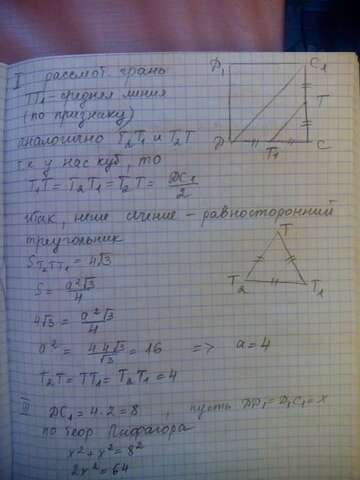 I рассмот. грань
TT₁ - средняя линия
(по признаку)
аналогично T₂T₁ и T₂T
т.к у нас куб, то
T₁T = T₂T₁ = T₂T = DC₁/2
Так, наше сечение - равносторонний
треугольник
S T₂TT₁ = 4√3
S = a²√3/4
4√3 = a²√3/4
a² = 4·4√3/√3 = 16 => a = 4
T₂T = TT₁ = T₂T₁ = 4
II DC₁ = 4·2 = 8, пусть DD₁ = D₁C₁ = x
по теор Пифагора
x² + x² = 8²
2x² = 64
D₁ C₁
T
D T₁ C
T
T₂ T₁